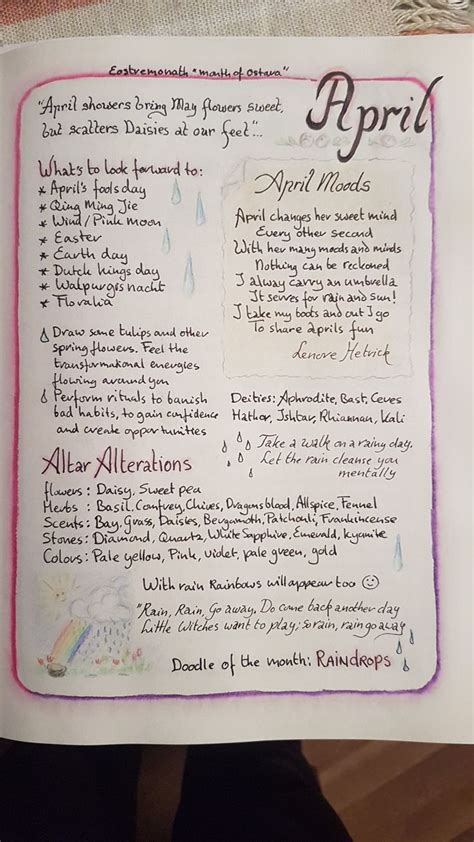 Eostremonath "month of Ostara"
April
"April showers bring May flowers sweet,
but scatters Daisies at our feet"...
What's to look forward to:
* April's foolsday
* Qing Ming Jie
* Wind/Pink moon
* Easter
* Earth day
* Dutch kings day
* Walpurgis nacht
* Floralia
Draw some tulips and other
spring flowers. Feel the
transformational energies
flowing around you
Perform rituals to banish
bad habits, to gain confidence
and create opportunities
April Moods
April changes her sweet mind
Every other second
With her many moods and minds
Nothing can be reckoned
I alway carry an umbrella
It serves for rain and sun!
I take my boots and out I go
To share aprils fun
Lenore Hetrick
Deities: Aphrodite, Bast, Ceres
Hathor, Ishtar, Rhiannan, Kali
Take a walk on a rainy day.
Let the rain cleanse you
mentally
Altar Alterations
flowers: Daisy, Sweet pea
Herbs: Basil, Comfrey, Chives, Dragonsblood, Allspice, Fennel
Scents: Bay, Grass, Daisies, Bergamoth, Patchouli, Frankincense
Stones: Diamond, Quartz, White Sapphire, Emerald, kyanite
Colours: Pale yellow, Pink, violet, pale green, gold
With rain Rainbows will appear too ☺
"Rain, Rain, Go away. Do come back another day
Little Witches want to play; so rain, rain go away
Doodle of the month: RAINDROPS